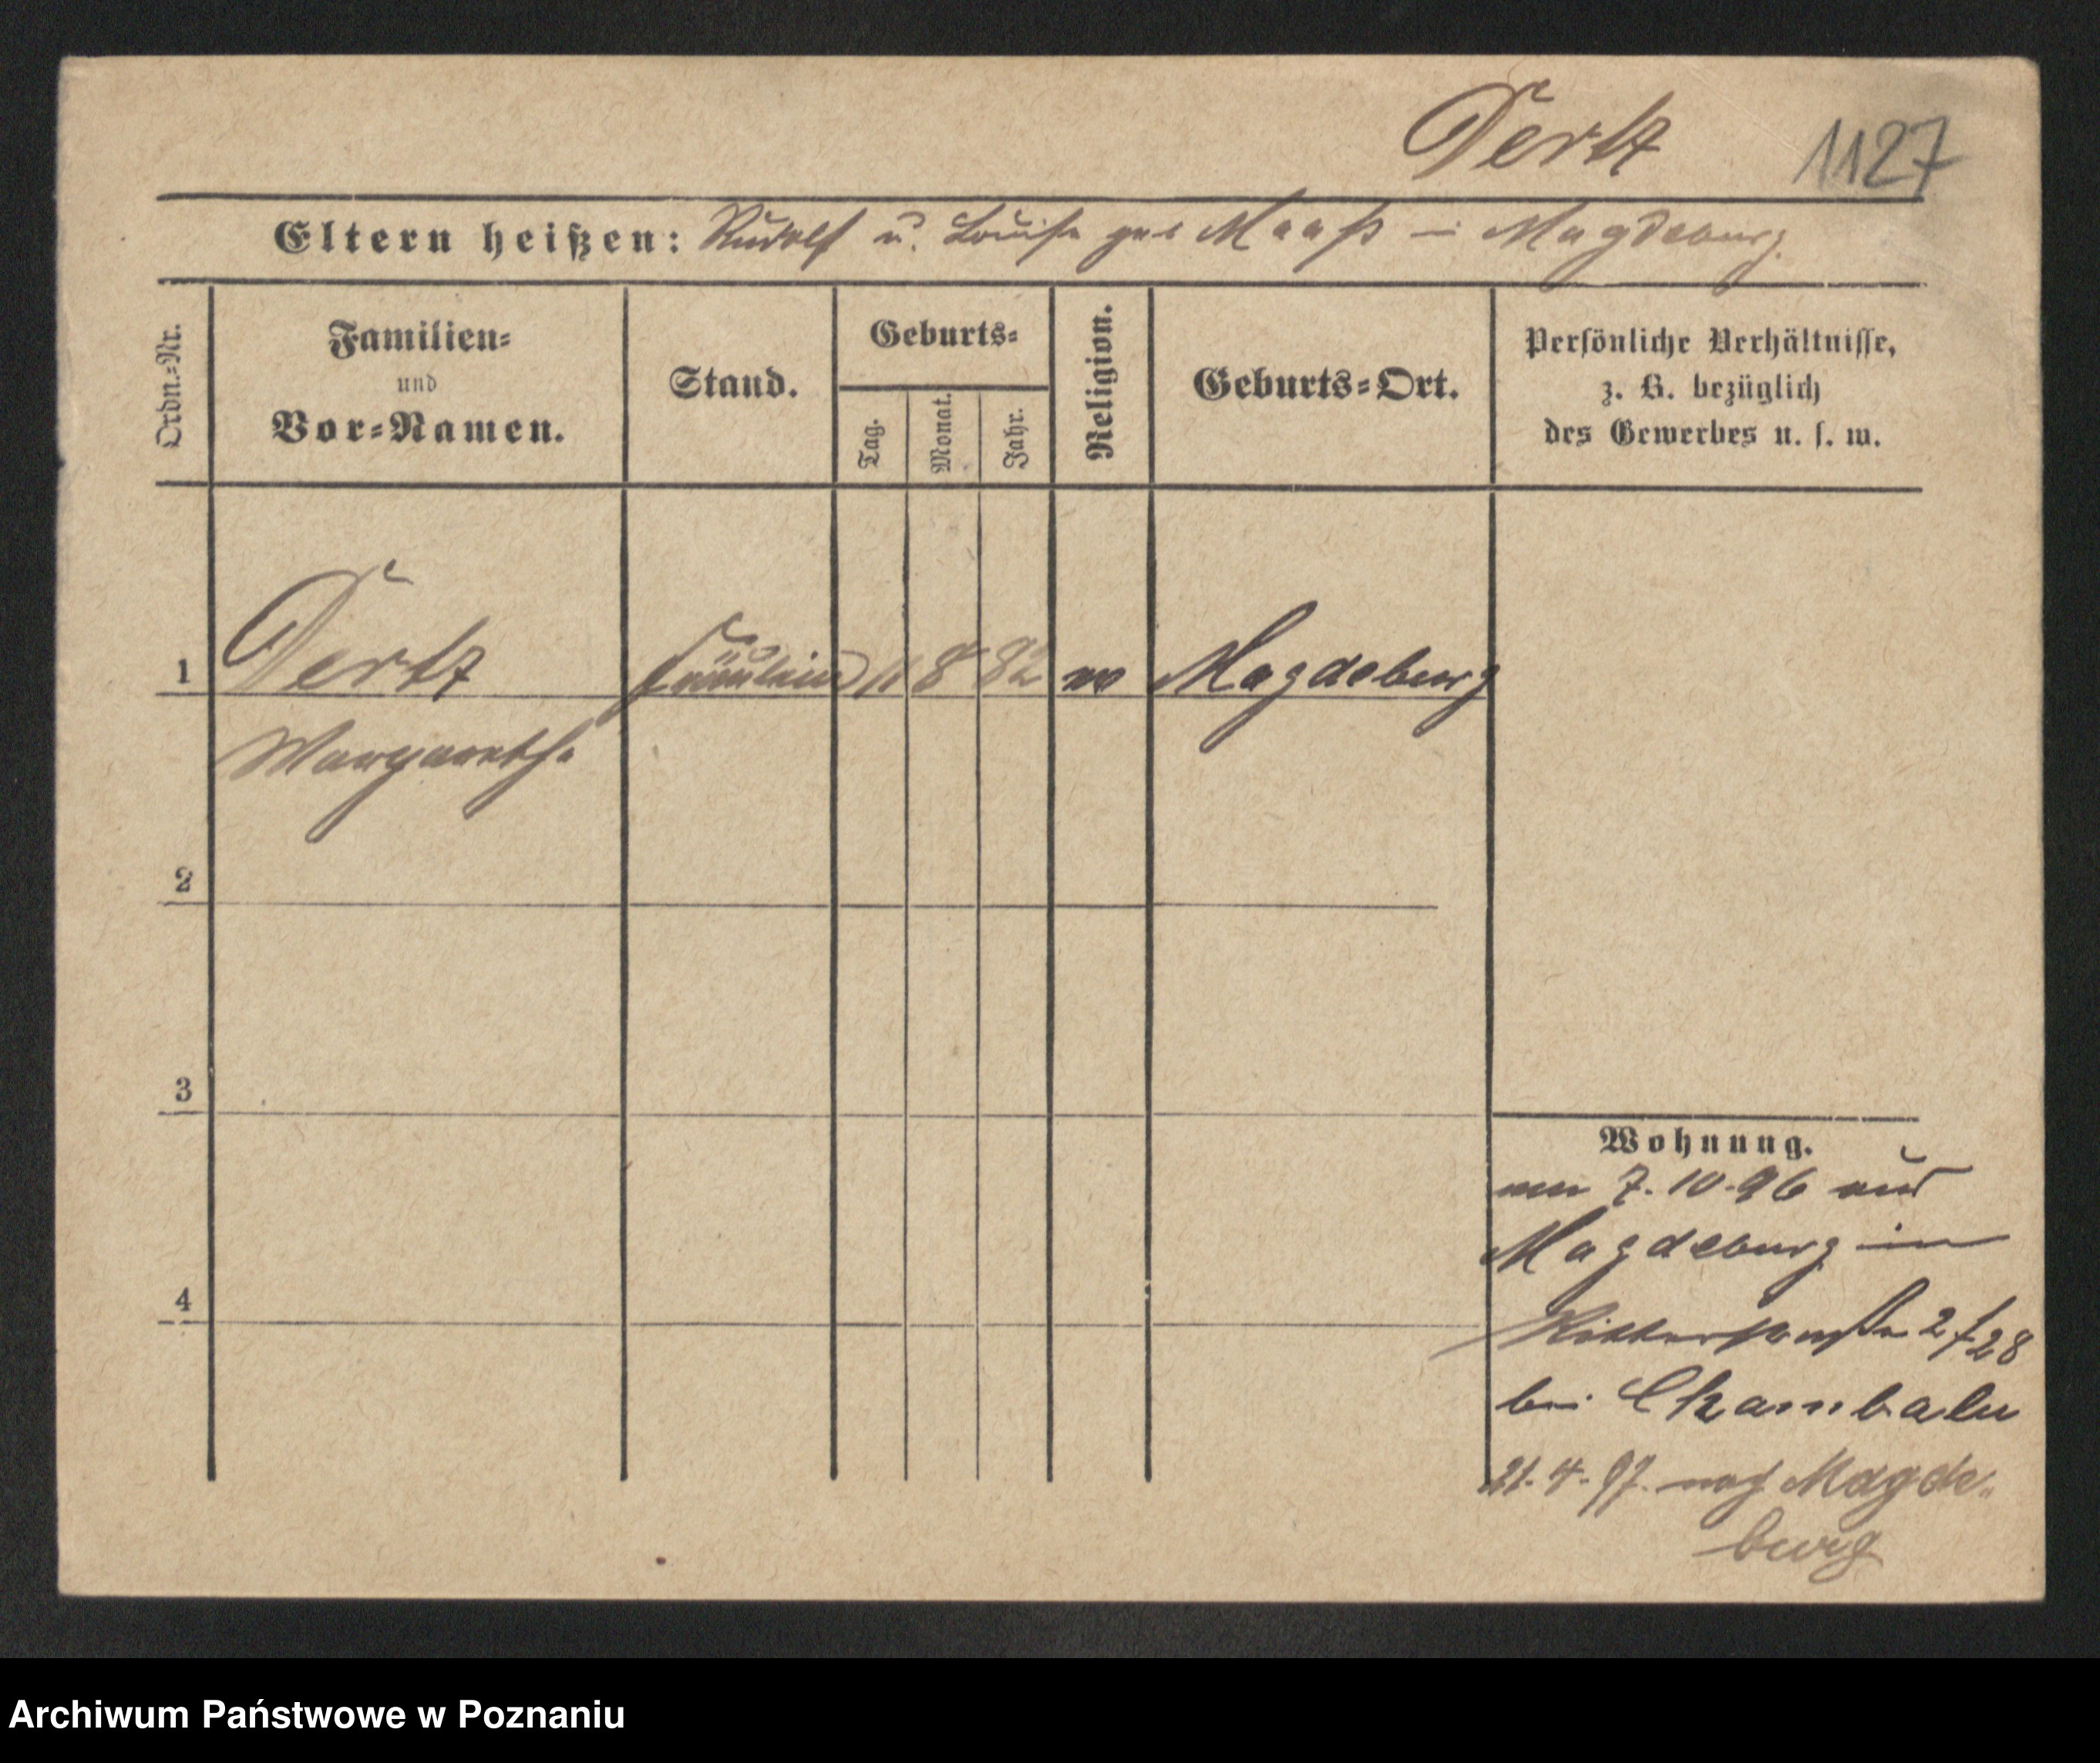 Dertz 1127
Eltern heißen: Rudolf u. Louise geb Maaß in Magdeburg
Ordn.-Nr.
Familien-
und
Vor-Namen.
Stand.
Geburts-
Tag.
Monat.
Jahr.
Religion.
Geburts-Ort.
Persönliche Verhältnisse,
z. B. bezüglich
des Gewerbes u. s. w.
1 Dertz Fräulein 11 8 82 Magdeburg
Margarethe
2
3
4
Wohnung.
7.10.96 aus
Magdeburg in
Ritterstraße 27/28
bei
21.4.97. nach Magde-
burg
Archiwum Państwowe w Poznaniu